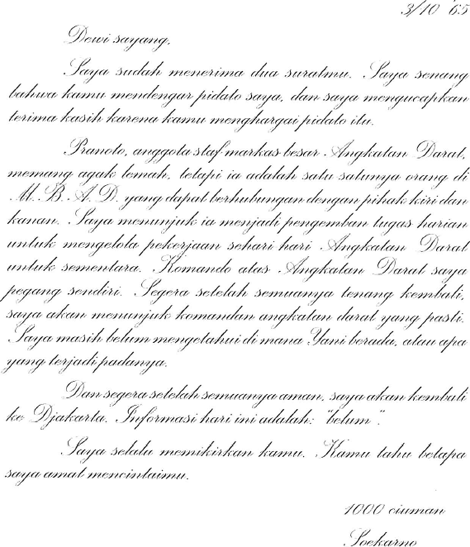 3/10 '65
Dewi sayang,
Saya sudah menerima dua suratmu. Saya senang
bahwa kamu mendengar pidato saya, dan saya mengucapkan
terima kasih karena kamu menghargai pidato itu.
Pranoto, anggota staf markas besar Angkatan Darat,
memang agak lemah, tetapi ia adalah satu satunya orang di
M. B. A. D. yang dapat berhubungan dengan pihak kiri dan
kanan. Saya menunjuk ia menjadi pengemban tugas harian
untuk mengelola pekerjaan sehari hari Angkatan Darat
untuk sementara. Komando atas Angkatan Darat saya
pegang sendiri. Segera setelah semuanya tenang kembali,
saya akan menunjuk komandan angkatan darat yang pasti.
Saya masih belum mengetahui di mana Yani berada, atau apa
yang terjadi padanya.
Dan segera setelah semuanya aman, saya akan kembali
ke Djakarta. Informasi hari ini adalah: "belum".
Saya selalu memikirkan kamu. Kamu tahu betapa
saya amat mencintaimu.
1000 ciuman
Soekarno